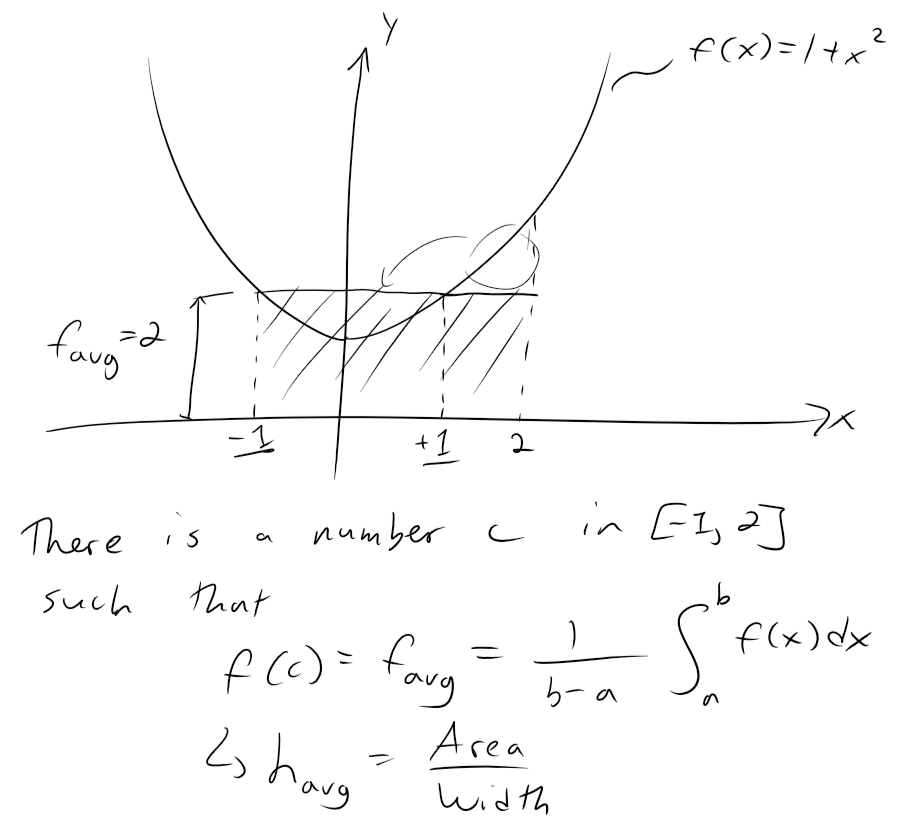 y
f(x)=1+x²
f_avg=2
-1 +1 2 x
There is a number c in [-1, 2]
such that
f(c) = f_avg = 1/(b-a) ∫_a^b f(x)dx
↳ h_avg = Area/Width